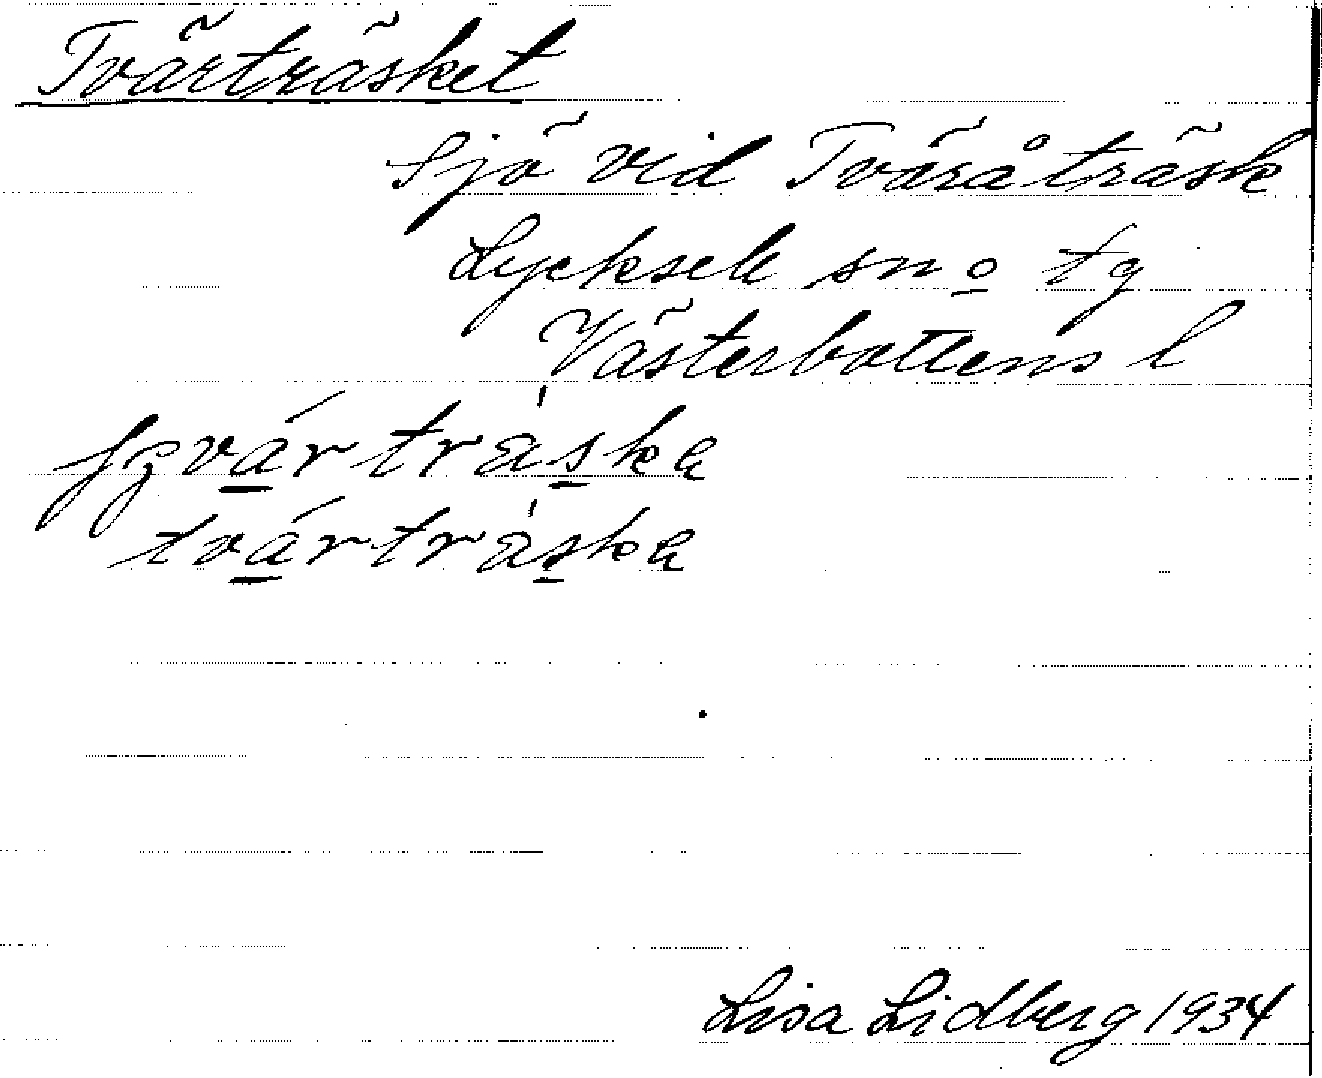 Tvärträsket
Sjö vid Tväråträsk
Lycksele sn o tg
Västerbottens l
tvárträska
Lisa Lidberg 1934